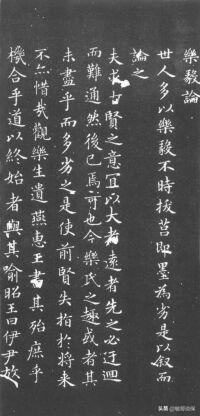 樂毅論
世人多以樂毅不時拔莒即墨為劣是以叙而
論之
夫求古賢之意宜以大者遠者先之必迂迴
而難通然後已焉可也今樂氏之趣或者其
未盡乎而多劣之是使前賢失指於將来
不亦惜哉觀樂生遺燕惠王書其殆庶乎
機合乎道以終始者與其喻昭王曰伊尹放